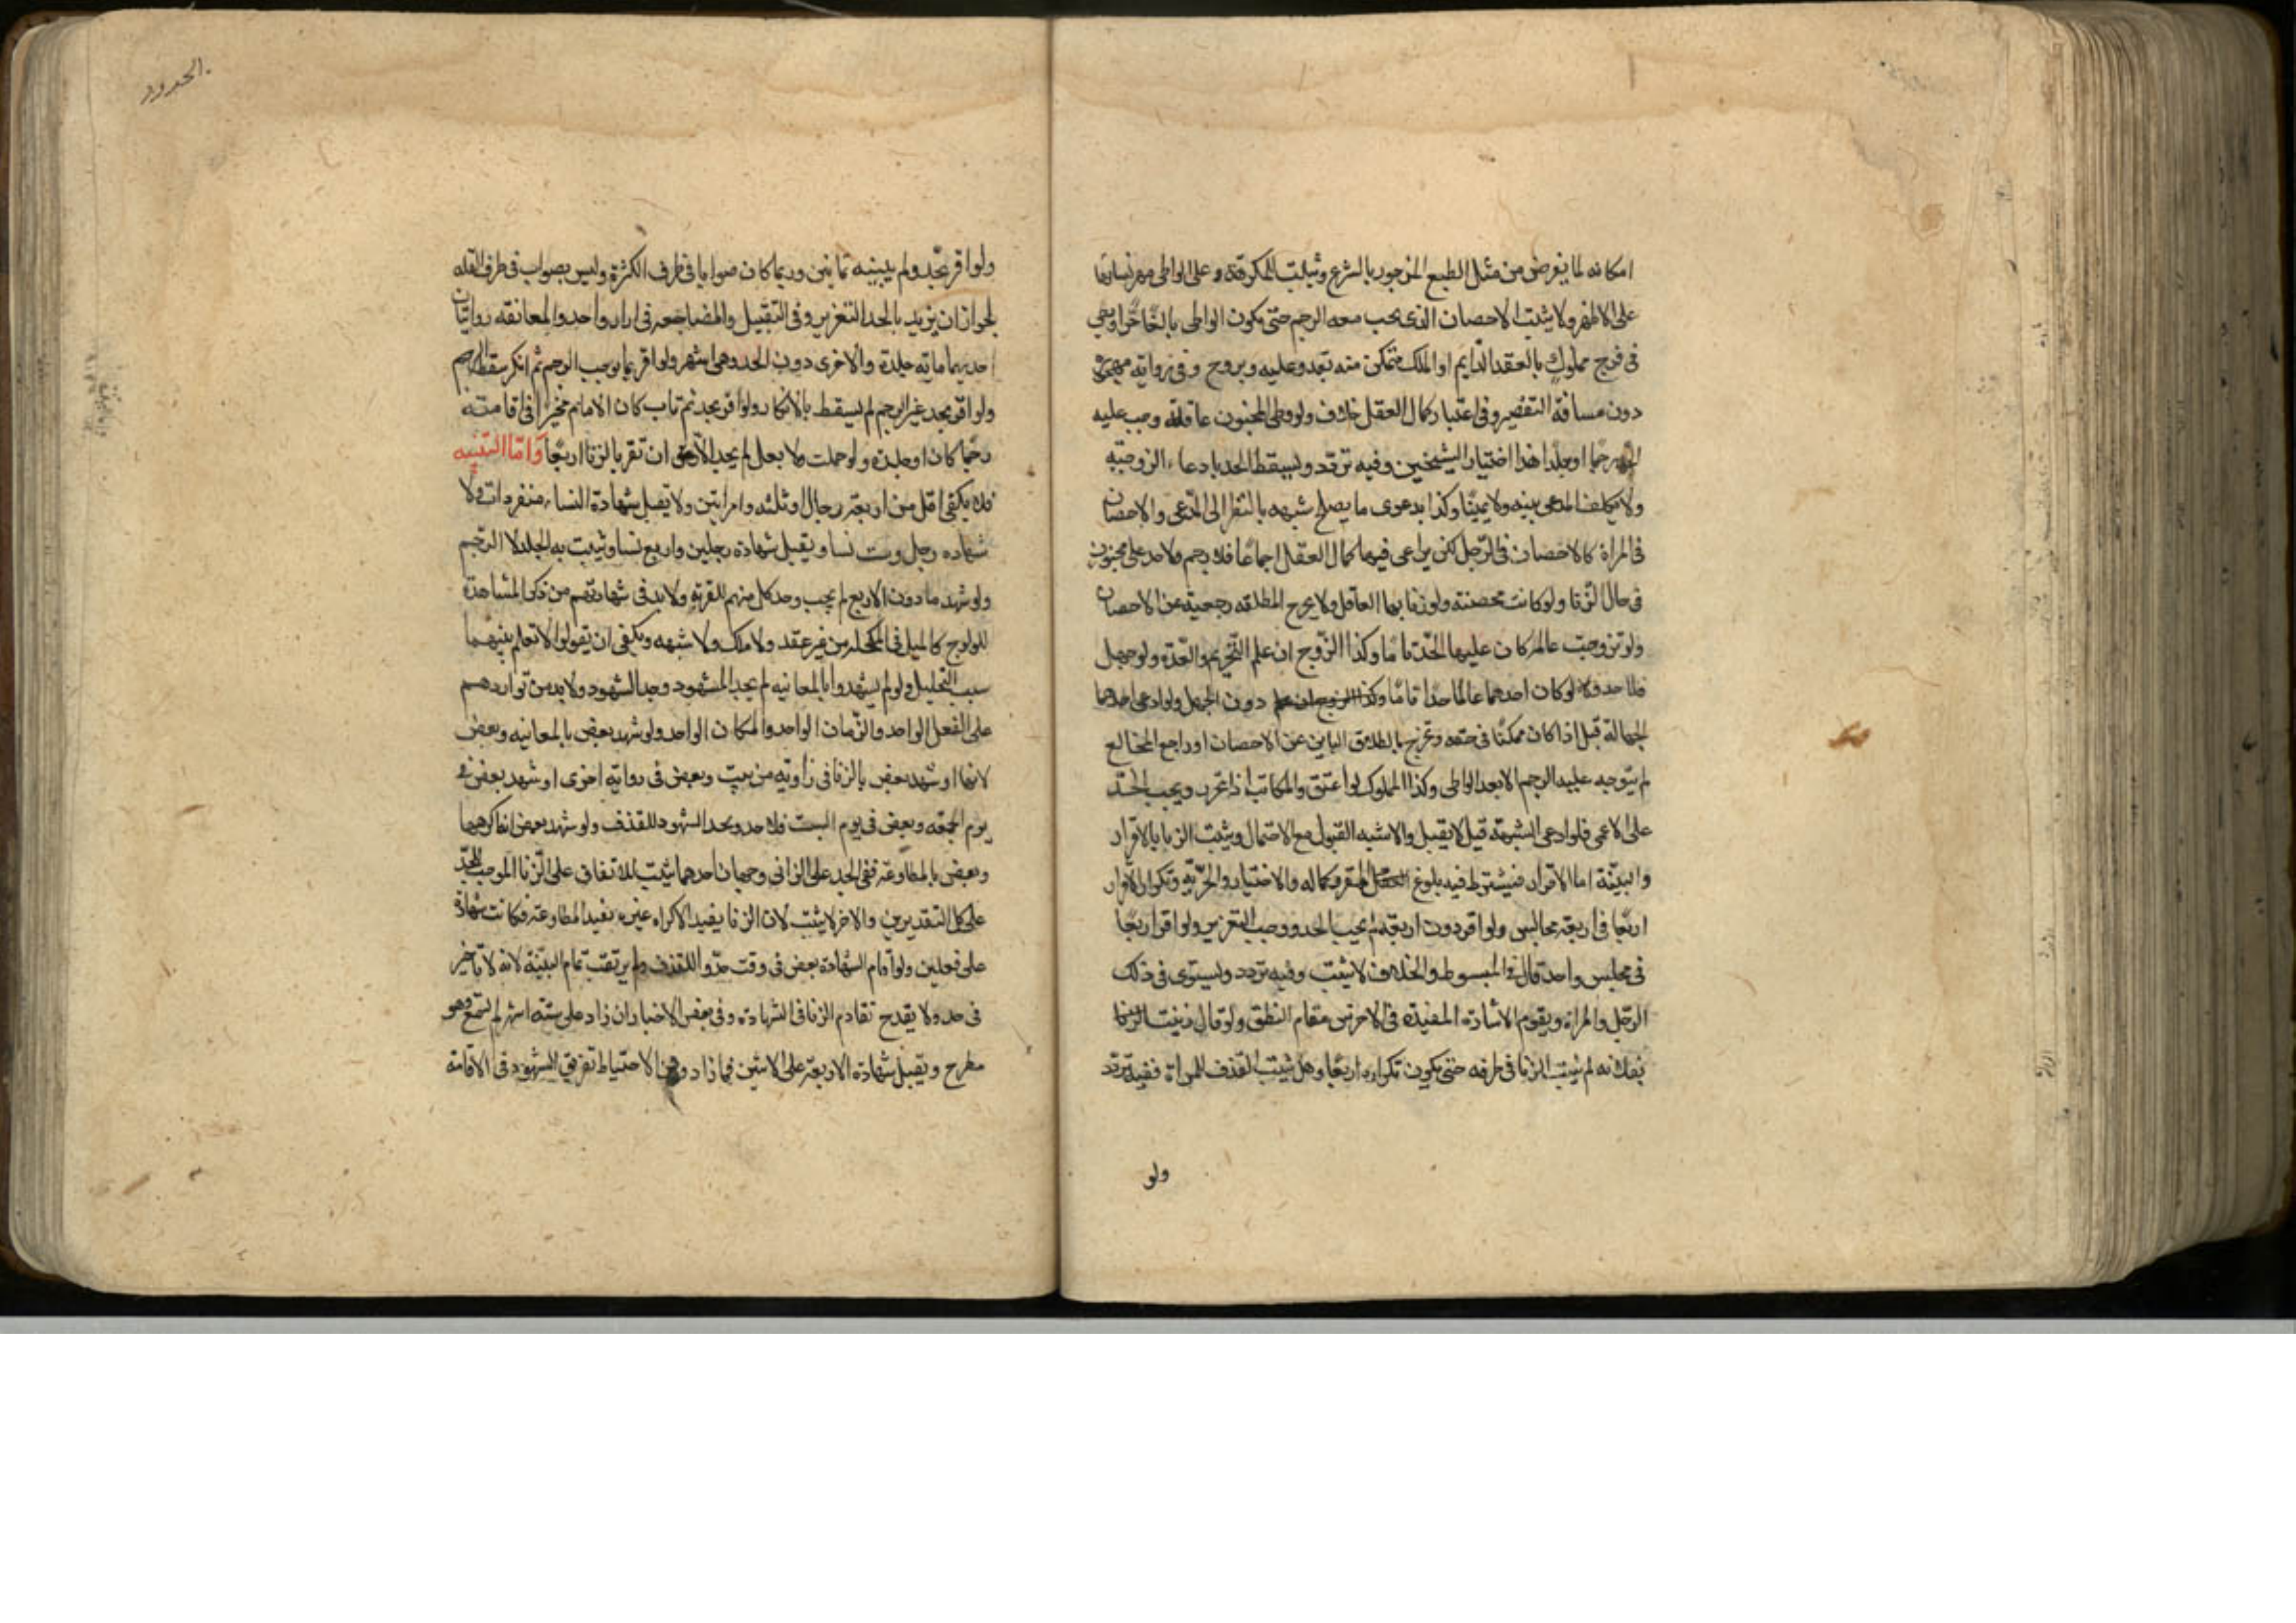 امكانه لما يعرض من مثل الطبع المزجور بالشرع وثبت للمكرهة على الواطى مهر نسائها
على الاظهر ولا يثبت الاحصان الذى يجب معه الرجم حتى يكون الواطى بالغا حرا ويطى
فى فرج مملوك بالعقد الدايم او الملك متمكن منه يغدو عليه ويروح وفى رواية مهجورة
دون مسافة التقصير وفى اعتبار كمال العقل خلاف ولو وطى المجنون عاقلة وجب عليه
الحد رجما او جلدا هذا اختيار الشيخين وفيه تردد ويسقط الحد بادعاء الزوجية
ولا يكلف المدعى بينه ولا يمينا وكذا بدعوى ما يصلح شبهه بالنظر الى المدعى والاحصان
فى المراة كالاحصان فى الرجل لكن يراعى فيها كمال العقل اجماعا فلا رجم ولا حد على مجنونة
فى حال الزنا ولو كانت محصنة ولو زنا بها العاقل ولا يخرج المطلقه رجعية عن الاحصان
ولو تزوجت عالمة كان عليها الحد تاما وكذا الزوج ان علم التحريم والعدة ولو جهل
فلا حد ولو كان احدهما عالما حد حدا تاما دون الجهل ولو ادعى احدهما
الجهالة قبل اذا كان ممكنا فى حقه وتخرج بالطلاق الباين عن الاحصان او راجع المخالع
لم يتوجه عليه الرجم الا بعد الواطى وكذا المملوك لو اعتق والمكاتب اذا تحرر ويجب الحد
على الاعمى فلو ادعى الشبهة قيل لا يقبل والاشبه القبول مع الاحتمال ويثبت الزنا بالاقرار
والبينة اما الاقرار فيشترط فيه بلوغ المقر وكماله والاختيار والحرية وتكرار الاقرار
اربعا فى اربعة مجالس ولو اقر دون اربعة لم يجب الحد ووجب التعزير ولو اقر اربعا
فى مجلس واحد قال فى المبسوط والخلاف لا يثبت وفيه تردد ويستوى فى ذلك
الرجل والمراة ويقوم الاشارة المفيدة فى الاخرس مقام النطق ولو قال زنيت
بفلانه لم يثبت الزنا فى طرفه حتى يكون تكراره اربعا وهل يثبت القذف للمراة ففيه تردد
ولو
الحدود
ولو اقر بحد ولم يبينه ثمانين وربما كان صوابا فى طرف الكثرة وليس بصواب فى طرف القلة
لجواز ان يزيد بالحد التعزير وفى التقبيل والمضاجعه فى ازار واحد والمعانقه روايتان
احديهما ماية جلدة والاخرى دون الحد وهى اشهر ولو اقر بما يوجب الرجم ثم انكر سقط الرجم
ولو اقر بحد غير الرجم لم يسقط بالانكار ولو اقر بحد ثم تاب كان الامام مخيرا فى اقامته
رجما كان او جلدة ولو حملت ولا بعل لم يحد الا ان تقر بالزنا اربعا واما البينه
فلا يكفى اقل من اربعة رجال او ثلثه وامراتين ولا يقبل شهادة النساء منفردات ولا
شهاده رجل وست نسا ويقبل شهادة رجلين واربع نسا ويثبت به الجلد لا الرجم
ولو شهد ما دون الاربع لم يجب وحد كل منهم للفرية ولا بد فى شهادتهم من ذكر المشاهدة
للولوج كالميل فى المكحلة من غير عقد ولا ملك ولا شبهه ويكفى ان يقولوا لا نعلم بينهما
سبب التحليل ولو لم يشهدوا بالمعاينه لم يحد المشهود وحد الشهود ولا بد من تواردهم
على الفعل الواحد والزمان الواحد والمكان الواحد ولو شهد بعض بالمعاينه وبعض
لا بها او شهد بعض بالزنا فى زاوية من بيت وبعض فى رواية اخرى او شهد بعض فى
يوم الجمعه وبعض فى يوم السبت فلا حد ويحد الشهود للقذف ولو شهد بعض انه اكرهها
وبعض بالمطاوعة ففى الحد على الزانى وجهان احدهما يثبت للاتفاق على الزنا الموجب للحد
على كل التقديرين والاخر لا يثبت لان الزنا يقيد الاكراه غيره بقيد المطاوعة فكانت شهادة
على فعلين ولو اقام الشهادة بعض فى وقت حدوا للقذف ولم يرتقب تمام البينة لانه لا تاخير
فى حد ولا يقدح تقادم الزنا فى الشهادة وفى بعض الاخبار ان زاد على ستة اشهر لم تسمع وهو
مطرح ويقبل شهادة الاربعة على الاثنين فما زاد الاحتياط تفريق الشهود فى الاقامة